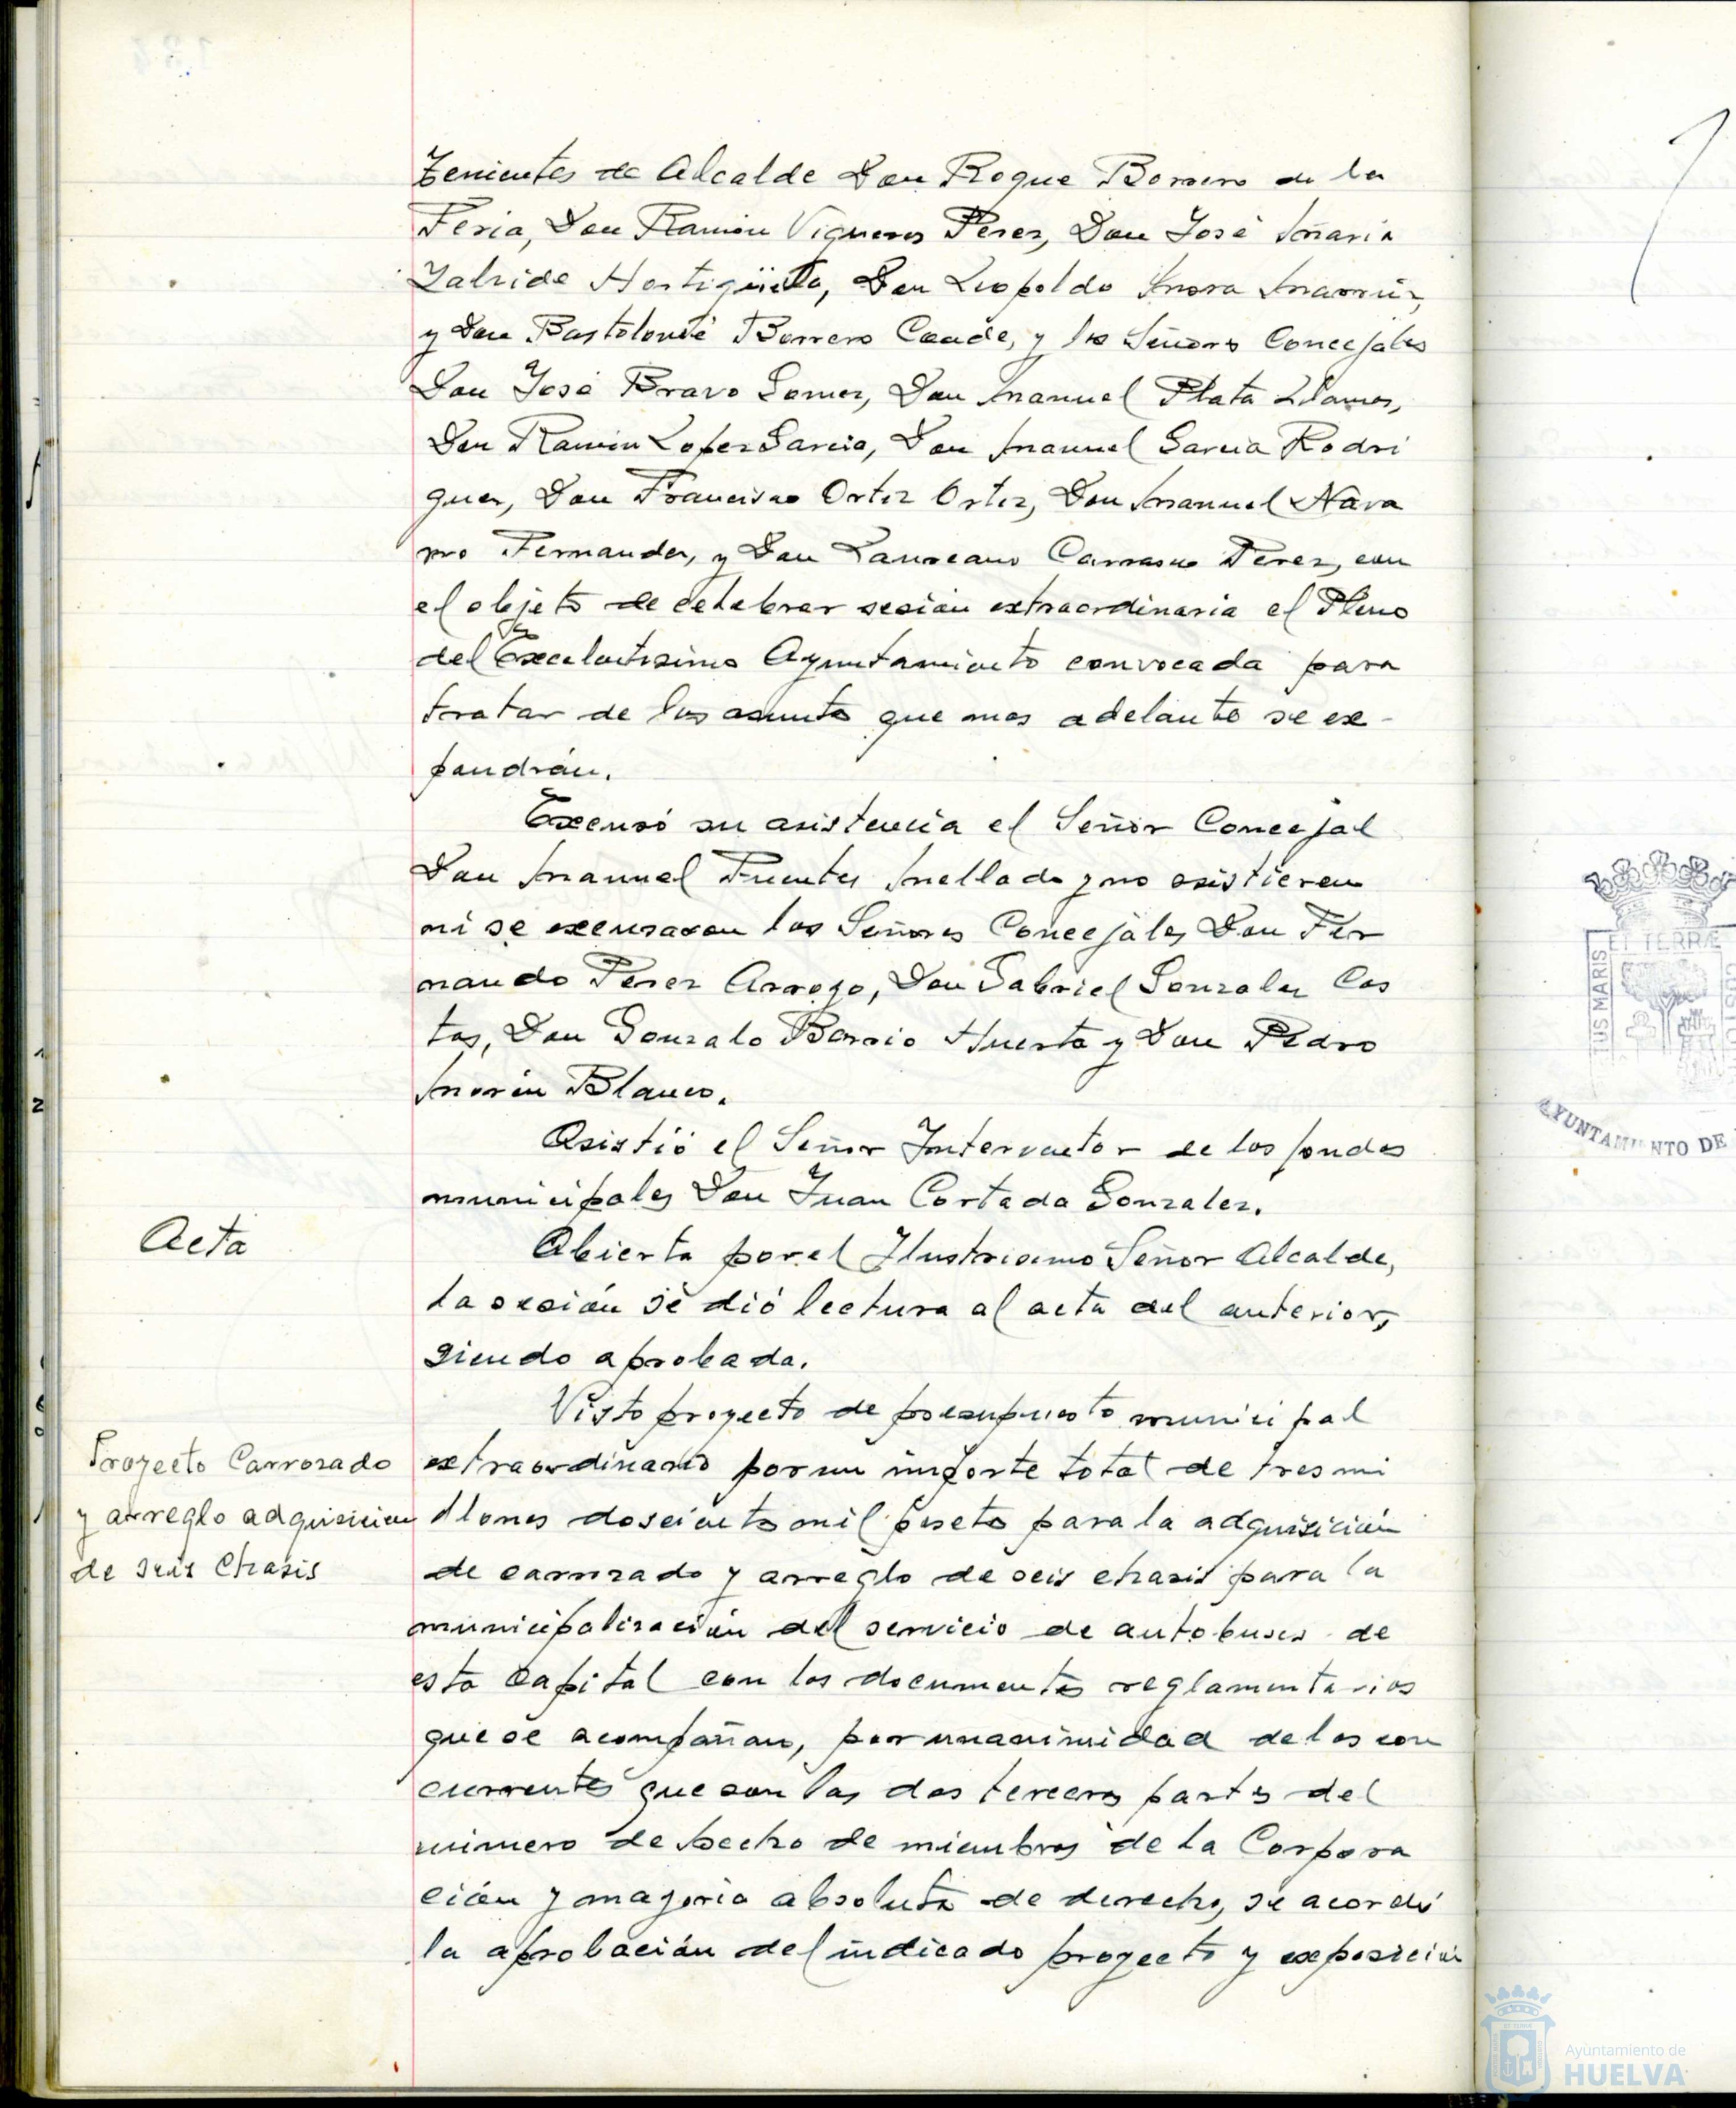 Tenientes de Alcalde Don Roque Borrero de la
Feria, Don Ramón Vigueras Perez, Don José María
Zalvide Hortigüela, Don Leopoldo Mora
y Don Bartolomé Borrero Conde, y los Señores Concejales
Don José Bravo Gomez, Don Manuel Plata Llanes,
Don Ramón Lopez Garcia, Don Manuel Garcia Rodri
guez, Don Francisco Ortiz Ortiz, Don Manuel Nava
rro Fernandez, y Don Laureano Carrasco Perez, con
el objeto de celebrar sesión extraordinaria el Pleno
del Excelentisimo Ayuntamiento convocada para
tratar de los asuntos que mas adelante se ex-
pondrán.
Excusó su asistencia el Señor Concejal
Don Manuel Fuentes Mellado y no asistieron
ni se excusaron los Señores Concejales Don Fer
nando Perez Arroyo, Don Gabriel Gonzalez Cos
tas, Don Gonzalo Barrio Huerta y Don Pedro
Morón Blanco.
Asistió el Señor Interventor de los fondos
municipales Don Juan Cortada Gonzalez.
Acta
Abierta por el Ilustrisimo Señor Alcalde,
la sesión se dió lectura al acta del anterior,
siendo aprobada.
Proyecto Carrozado
y arreglo adquisicion
de seis Chasis
Visto proyecto de presupuesto municipal
extraordinario por un importe total de tres mi
llones doscientos mil pesetas para la adquisición
de carrozado y arreglo de seis chasis para la
municipalización del servicio de autobuses de
esta Capital con los documentos reglamentarios
que se acompañan, por unanimidad de los con
currentes que son las dos terceras partes del
número de hecho de miembros de la Corpora
ción y mayoría absoluta de derecho, se acordó
la aprobación del indicado proyecto y exposición
ET TERRÆ
US MARIS
AYUNTAMIENTO DE
Ayuntamiento de
HUELVA